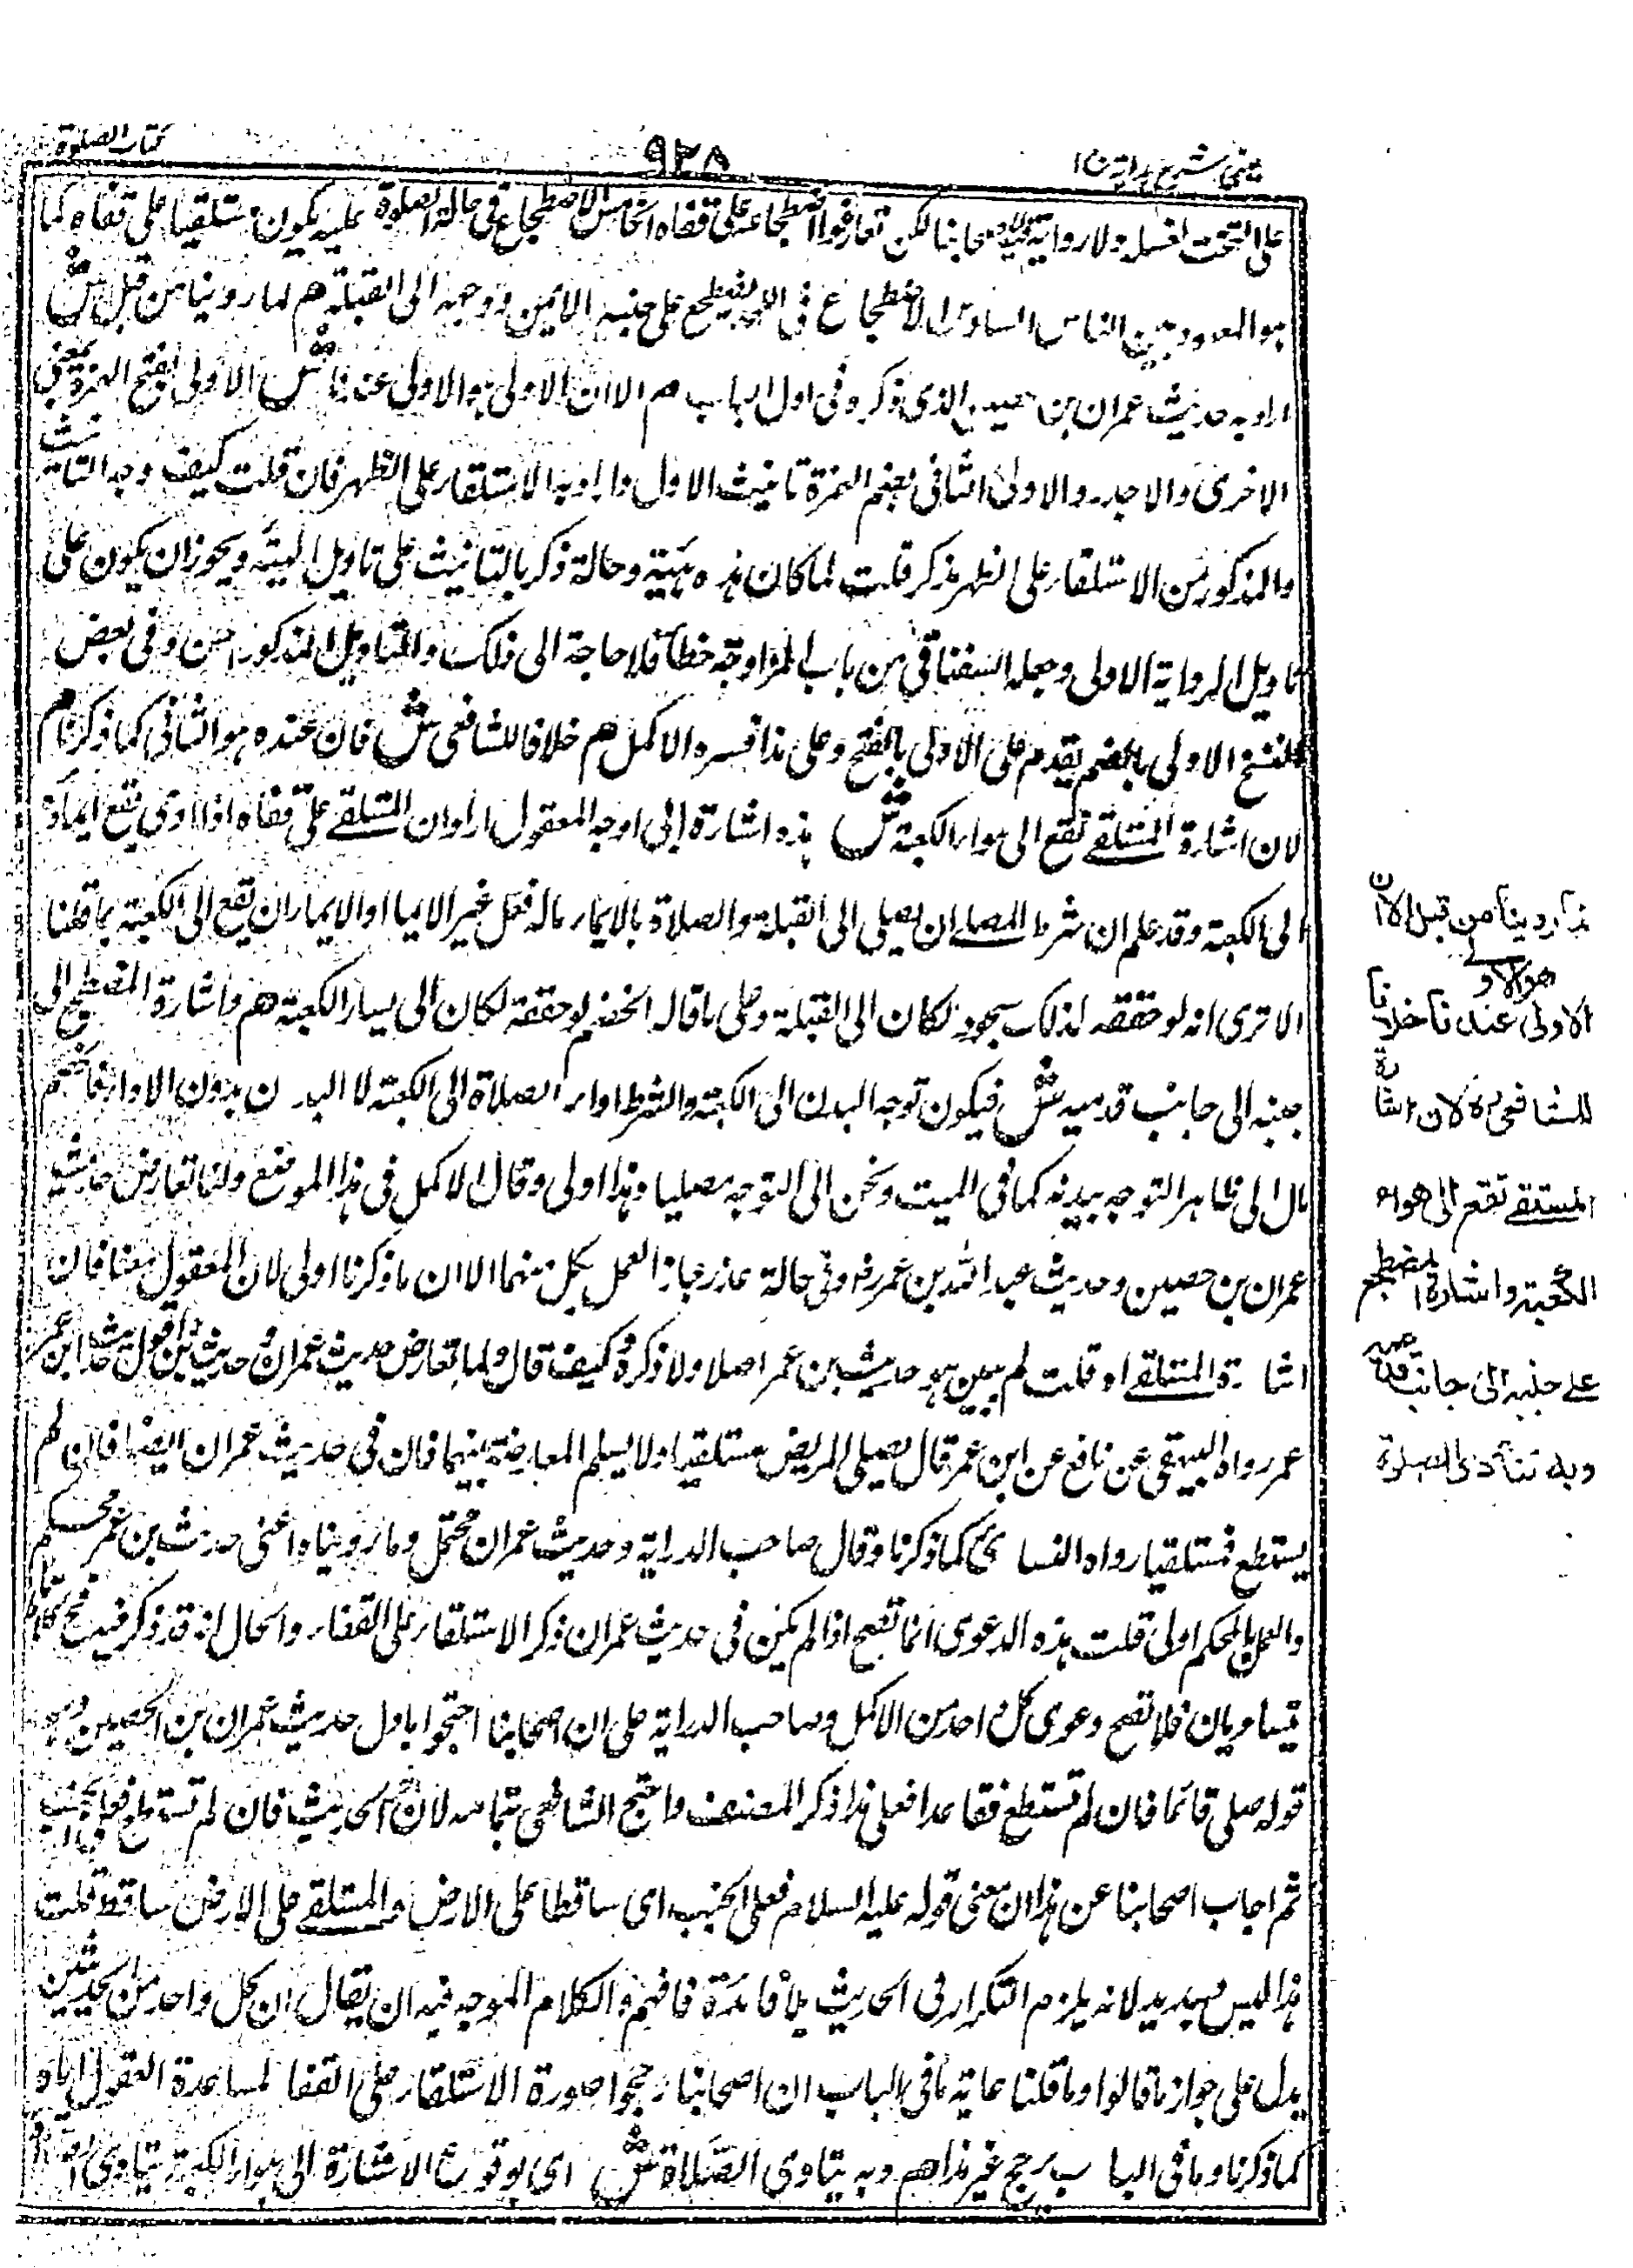 عينى شرح هداية ج ١
٩٢٨
كتاب الصلوة
على التخت لغسله ولا رواية عن اصحابنا لكن تعارفوا اضطجاعه على قفاه الخامس الاضطجاع فى حالة الصلوة عليه يكون مستلقيا على قفاه كما
هو المعهود بين الناس السادس الاضطجاع فى يضطجع على جنبه الايمن ووجهه الى القبلة هم لما روينا من قبل ش
اراد به حديث عمران بن حصين الذى ذكره فى اول الباب هم الا ان الاولى هو الاولى عندنا ش الاولى بفتح الهمزة بمعنى
الاخرى والاجدر والاولى الثانى بضم الهمزة تانيث الاول واراد به الاستلقاء على الظهر فان قلت كيف وجه التانيث
والمذكور من الاستلقاء على الظهر مذكر قلت لما كان هذه هيئة وحالة ذكر بالتانيث على تاويل الهيئة ويجوز ان يكون على
تاويل الرواية الاولى وجعله السغناقى من باب المزاوجة خطأ فلا حاجة الى ذلك والتاويل المذكور حسن وفى بعض
النسخ الاولى بالضم يقدم على الاولى بالفتح وعلى هذا فسره الاكمل هم خلافا للشافعى ش فان عنده هو الثانى كما ذكرنا هم
لان اشارة المستلقے تقع الى هواء الكعبة ش هذه اشارة الى اوجه المعقول اراد ان المستلقے على قفاه اذا اومى تقع ايماؤه
الى الكعبة وقد علم ان شرط المصلے ان يصلى الى القبلة والصلاة بالايماء ماله فعل غير الايماء او الايماء ان يقع الى الكعبة بما قلنا
الا ترى انه لو حققه لذلك سجود لكان الى القبلة وعلى ما قاله الخصم لو حققه لكان الى يسار الكعبة هم واشارة المضطجع الى
جنبه الى جانب قدميه ش فيكون توجه البدن الى الكعبة والشرط اداء الصلاة الى الكعبة لا البدن بدون الاداء فالخصم
مال الى ظاهر التوجه ببدنه كما فى الميت ونحن الى التوجه مصليا وهذا اولى وقال الاكمل فى هذا الموضع ولنا تعارض حديث
عمران بن حصين وحديث عبد الله بن عمر رض وفى حالة عذر جاز العمل بكل منهما الا ان ما ذكرنا اولى لان المعقول معنا فان
اشارة المستلقے اه قلت لم يبين هو حديث بن عمر اصلا ولا ذكره كيف قال ولما تعارض حديث عمران وحديث بن عمر اقول حديث ابن
عمر رواه البيهقى عن نافع عن ابن عمر قال يصلى المريض مستلقيا ولا يسلم المعارضة بينهما فان فى حديث عمران ايضا فان لم
يستطع فمستلقيا رواه النسائى كما ذكرنا وقال صاحب الدراية وحديث عمران محتمل وما رويناه اعنى حديث بن عمر محكم
والعمل بالمحكم اولى قلت هذه الدعوى انما تصح اذا لم يكن فى حديث عمران ذكر الاستلقاء على القفاء والحال انه قد ذكر فيه
متساويان فلا تصح دعوى كل احد من الاكمل وصاحب الدراية على ان اصحابنا احتجوا باول حديث عمران بن الحصين وهو
قوله صلى قائما فان لم تستطع فقاعدا فعلى هذا ذكر المصنف واحتج الشافعى بتمامه لان الحديث فان لم تستطع فعلى الجنب
ثم اجاب اصحابنا عن هذا ان معنى قوله عليه السلام فعلى الجنب اى ساقطا على الارض والمستلقے على الارض ساقط قلت
هذا ليس بسديد لانه يلزم التكرار فى الحديث بلا فائدة فافهم والكلام الموجه فيه ان يقال ان كل واحد من الحديثين
يدل على جواز ما قالوا وما قلنا غاية ما فى الباب ان اصحابنا رجحوا صورة الاستلقاء على القفا لمساعدة المعقول اياه
كما ذكرنا وما فى الباب يرجح غير هذا هم وبه يتأدى الصلاة ش اى بوقوع الاشارة الى هواء الكعبة يتأدى
لما روينا من قبل الا ان
الاولى هو الاولى عندنا خلافا
للشافعى ره لان اشارة
المستلقے تقع الى هواء
الكعبة واشارة المضطجع
على جنبه الى جانب قدميه
وبه تتأدى الصلوة